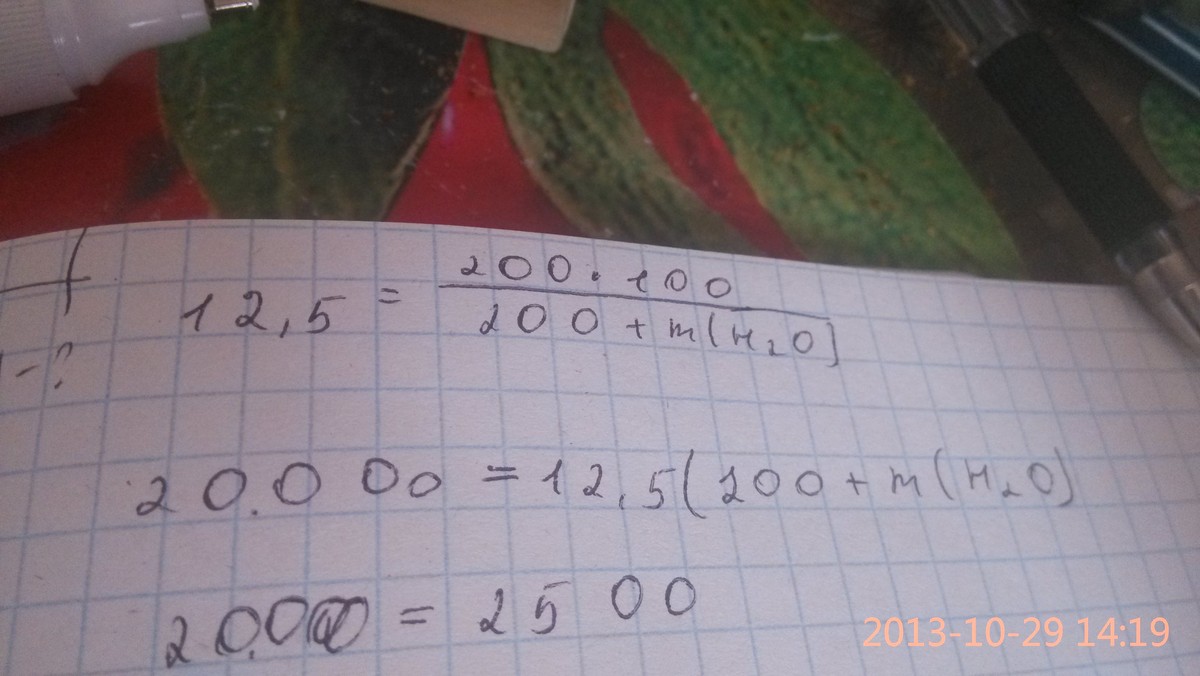 12,5 = 200 · 100 / 200 + m(H₂O)
-?
20.000 = 12,5(200 + m(H₂O)
20.000 = 2500
2013-10-29 14:19